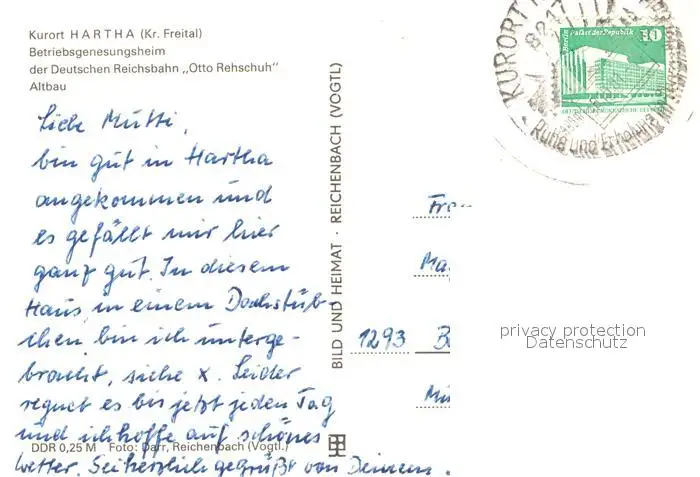 Kurort HARTHA (Kr. Freital)
Betriebsgenesungsheim
der Deutschen Reichsbahn „Otto Rehschuh“
Altbau
Liebe Mutti,
bin gut in Hartha
angekommen und
es gefällt mir hier
ganz gut. In diesem
Haus, in einem Dachstüb-
chen, bin ich unterge-
bracht, siehe x. Leider
regnet es bis jetzt jeden Tag
und ich hoffe auf schönes
Wetter. Sei herzlich gegrüßt von Deinem
DDR 0,25 M Foto: Darr, Reichenbach (Vogtl.)
BILD UND HEIMAT · REICHENBACH (VOGTL)
KURORT
8217
Ruhe und Erholung
Berlin Palast der Republik 10
1293 B
privacy protection
Datenschutz